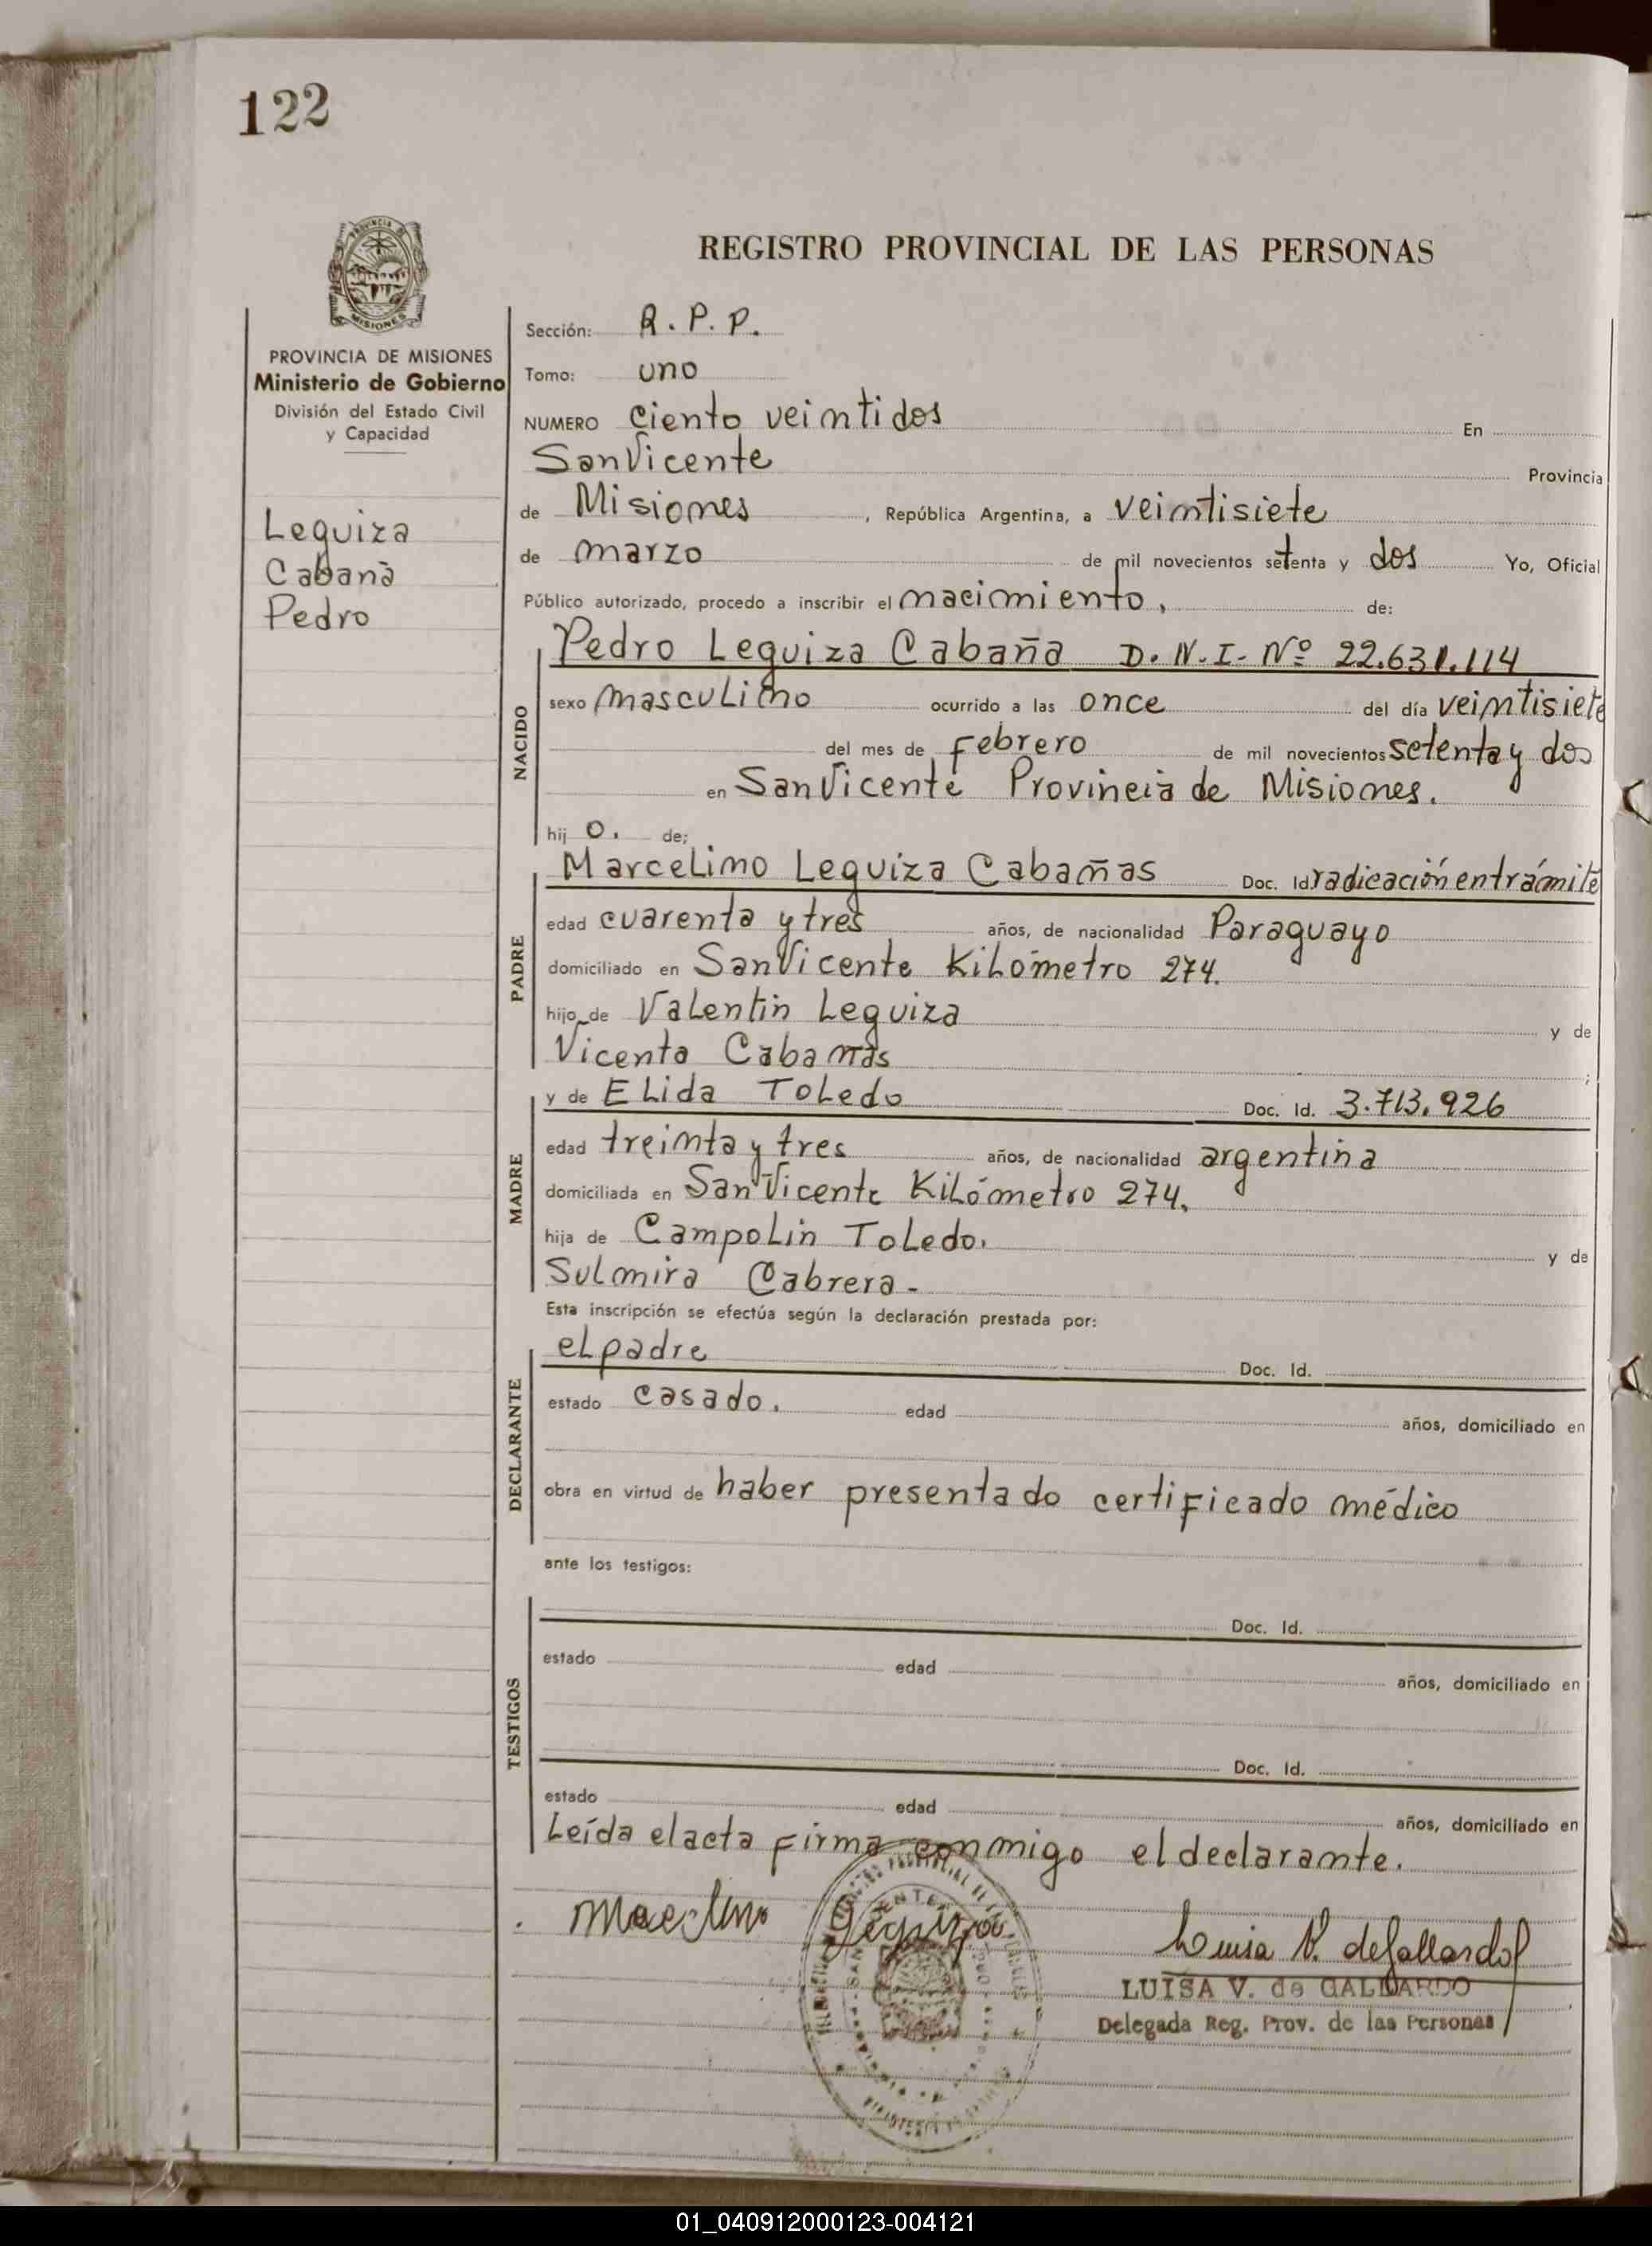 122
REGISTRO PROVINCIAL DE LAS PERSONAS
PROVINCIA DE MISIONES
Ministerio de Gobierno
División del Estado Civil
y Capacidad
Leguiza
Cabaña
Pedro
Sección: R. P. P.
Tomo: uno
NUMERO Ciento veintidos En
San Vicente Provincia
de Misiones, República Argentina, a veintisiete
de marzo de mil novecientos setenta y dos Yo, Oficial
Público autorizado, procedo a inscribir el nacimiento, de:
NACIDO
Pedro Leguiza Cabaña D.N.I. Nº 22.631.114
sexo masculino ocurrido a las once del día veintisiete
del mes de Febrero de mil novecientos setenta y dos
en San Vicente Provincia de Misiones.
hijo. de;
PADRE
Marcelino Leguiza Cabañas Doc. Id. radicación en trámite
edad cuarenta y tres años, de nacionalidad Paraguayo
domiciliado en San Vicente Kilómetro 274.
hijo de Valentin Leguiza y de
Vicenta Cabañas ;
MADRE
y de Elida Toledo Doc. Id. 3.713.926
edad treinta y tres años, de nacionalidad argentina
domiciliada en San Vicente Kilómetro 274.
hija de Campolin Toledo. y de
Sulmira Cabrera -
Esta inscripción se efectúa según la declaración prestada por:
DECLARANTE
el padre Doc. Id.
estado casado. edad años, domiciliado en
obra en virtud de haber presentado certificado médico
ante los testigos:
TESTIGOS
Doc. Id.
estado edad años, domiciliado en
Doc. Id.
estado edad años, domiciliado en
Leída el acta firma conmigo el declarante.
Leguiza
Luisa V. de Gallardo
LUISA V. de GALLARDO
Delegada Reg. Prov. de las Personas
01_040912000123-004121